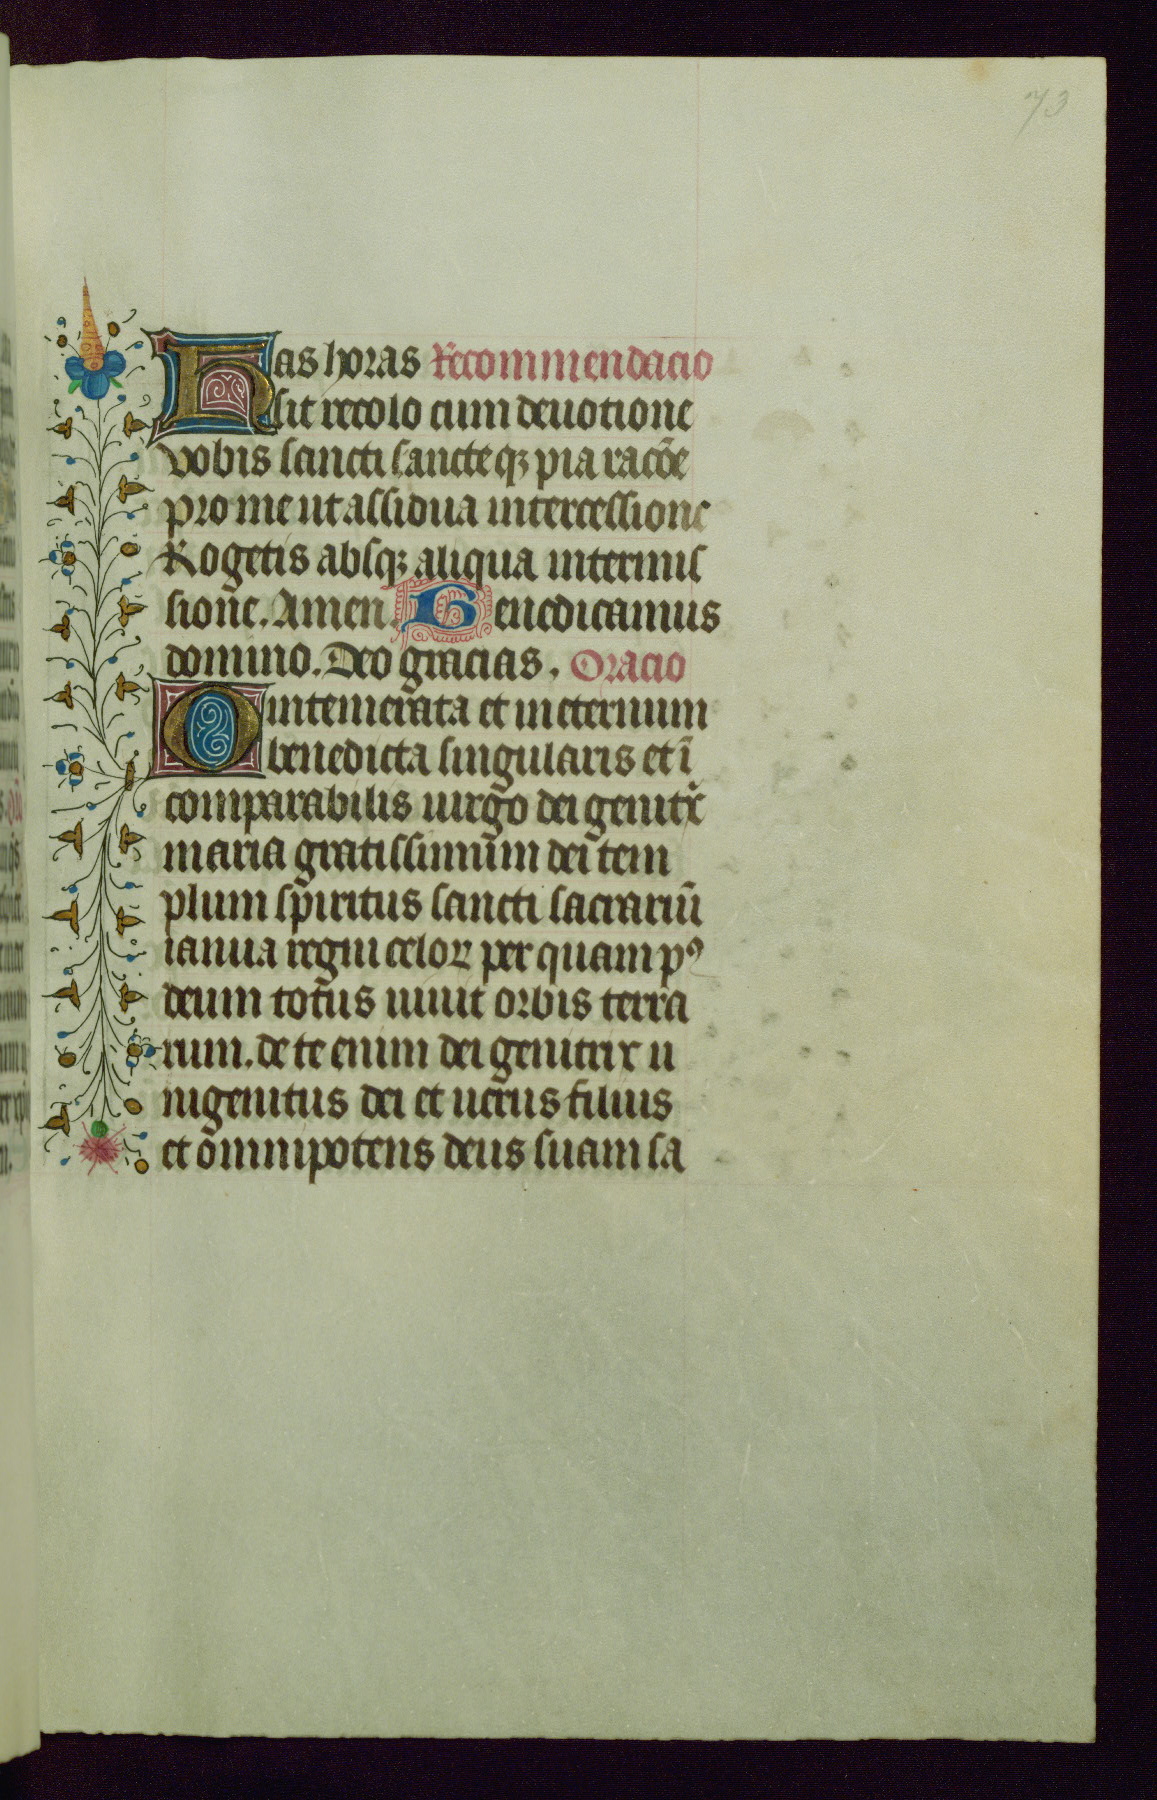 73
Has horas Recommendacio
sit recolo cum deuotione
vobis sancti sancteqꝫ pia racōe
pro me ut assidua intercessione
Rogetis absqꝫ aliqua intermis
sione. Amen. Benedicamus
domino. Deo gracias. Oracio
O intemerata et in eternum
benedicta singularis et ī
comparabilis uirgo dei genitx̄
maria gratissimum dei tem
plum spiritus sancti sacrariū
ianua regni celoꝝ per quam pꝰ
deum totus uiuit orbis terra
rum. de te enim dei genitrix u
nigenitus dei et uerus filius
et omnipotens deus suam sa